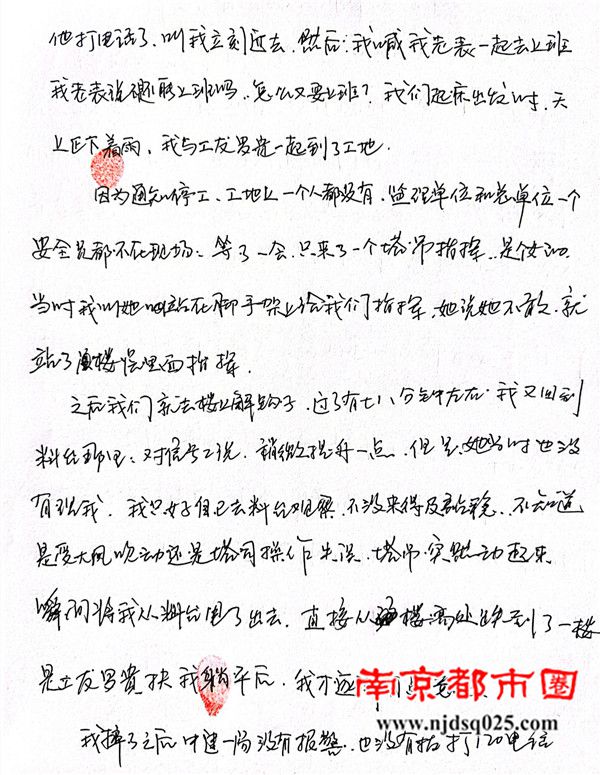 他打电话了，叫我立刻过去，然后：我喊我老表一起去上班
我老表说还能上班吗，怎么又要上班？我们起床出发时，天
上正下着雨、我与工友罗贵一起到了工地.
因为通知停工、工地上一个人都没有，监理单位和总单位一个
安全员都不在现场、等了一会.只来了一个塔吊指挥、是女的.
当时我叫她站在脚手架上给我们指挥，她说她不敢.就
站了楼层里面指挥.
之后我们就去楼上解钩子，过了有七八分钟左右.我又回到
料台那里.对信号工说，稍微提升一点，但是她当时也没
有理我，我只好自己去料台观察，还没来得及站稳、不知道
是受大风吹动还是塔司操作失误，塔吊突然动起来
瞬间将我从料台甩了出去，直接从楼高处跌到了一楼
是工友罗贵扶我躺平后，我才
我摔了之后中建一局没有报警、也没有拨打120电话
南京都市圈
www.njdsq025.com